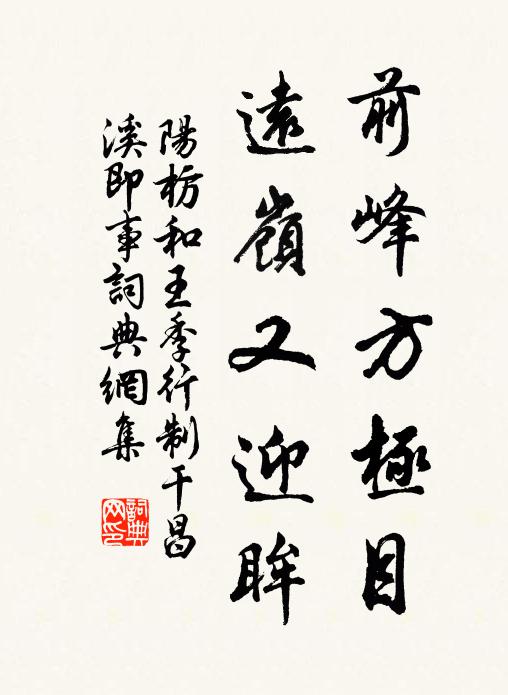 前峰方極目
遠嶺又迎眸
陽枋和王季行制干昌
溪即事詞典網集
詞典網印